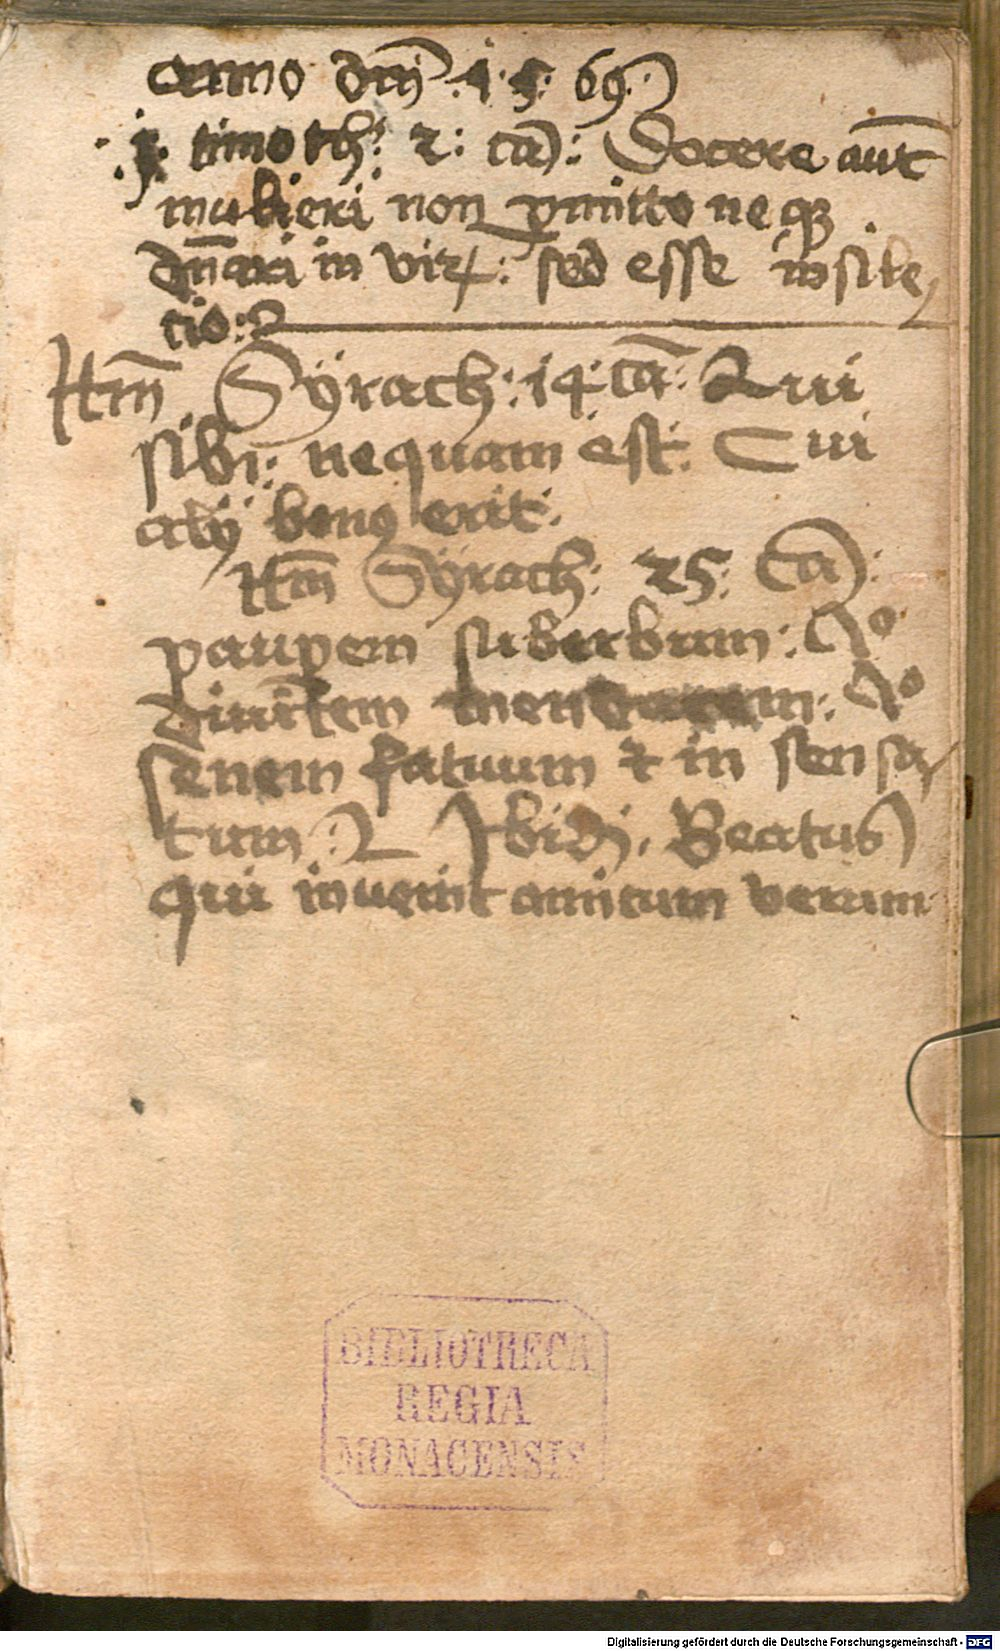 anno dnĩ .1.5.69.
.j. timoth: 2: cã: Docere aut̃
mulieri non pmitto neqʒ
dñari in vir̃: sed esse in sile,
tio:
Itm̃ Sÿrach: 14 cã: Qui
sibi: nequam est: Cui
alÿ bonꝰ erit.
Itm̃ Sÿrach: 25: Cã:
paupem suberbum: A°
diuitem mendacem: A°
senem fatuum ⁊ in sensa,
tum: Ibid̃. Beatus
qui inuenit amicum verum
BIBLIOTHECA
REGIA
MONACENSIS
Digitalisierung gefördert durch die Deutsche Forschungsgemeinschaft - DFG